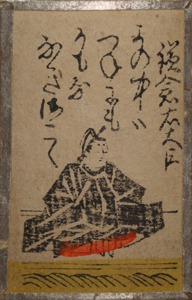 鎌倉右大臣
よの中ハ
つねにも
かもな
なぎさこぐ